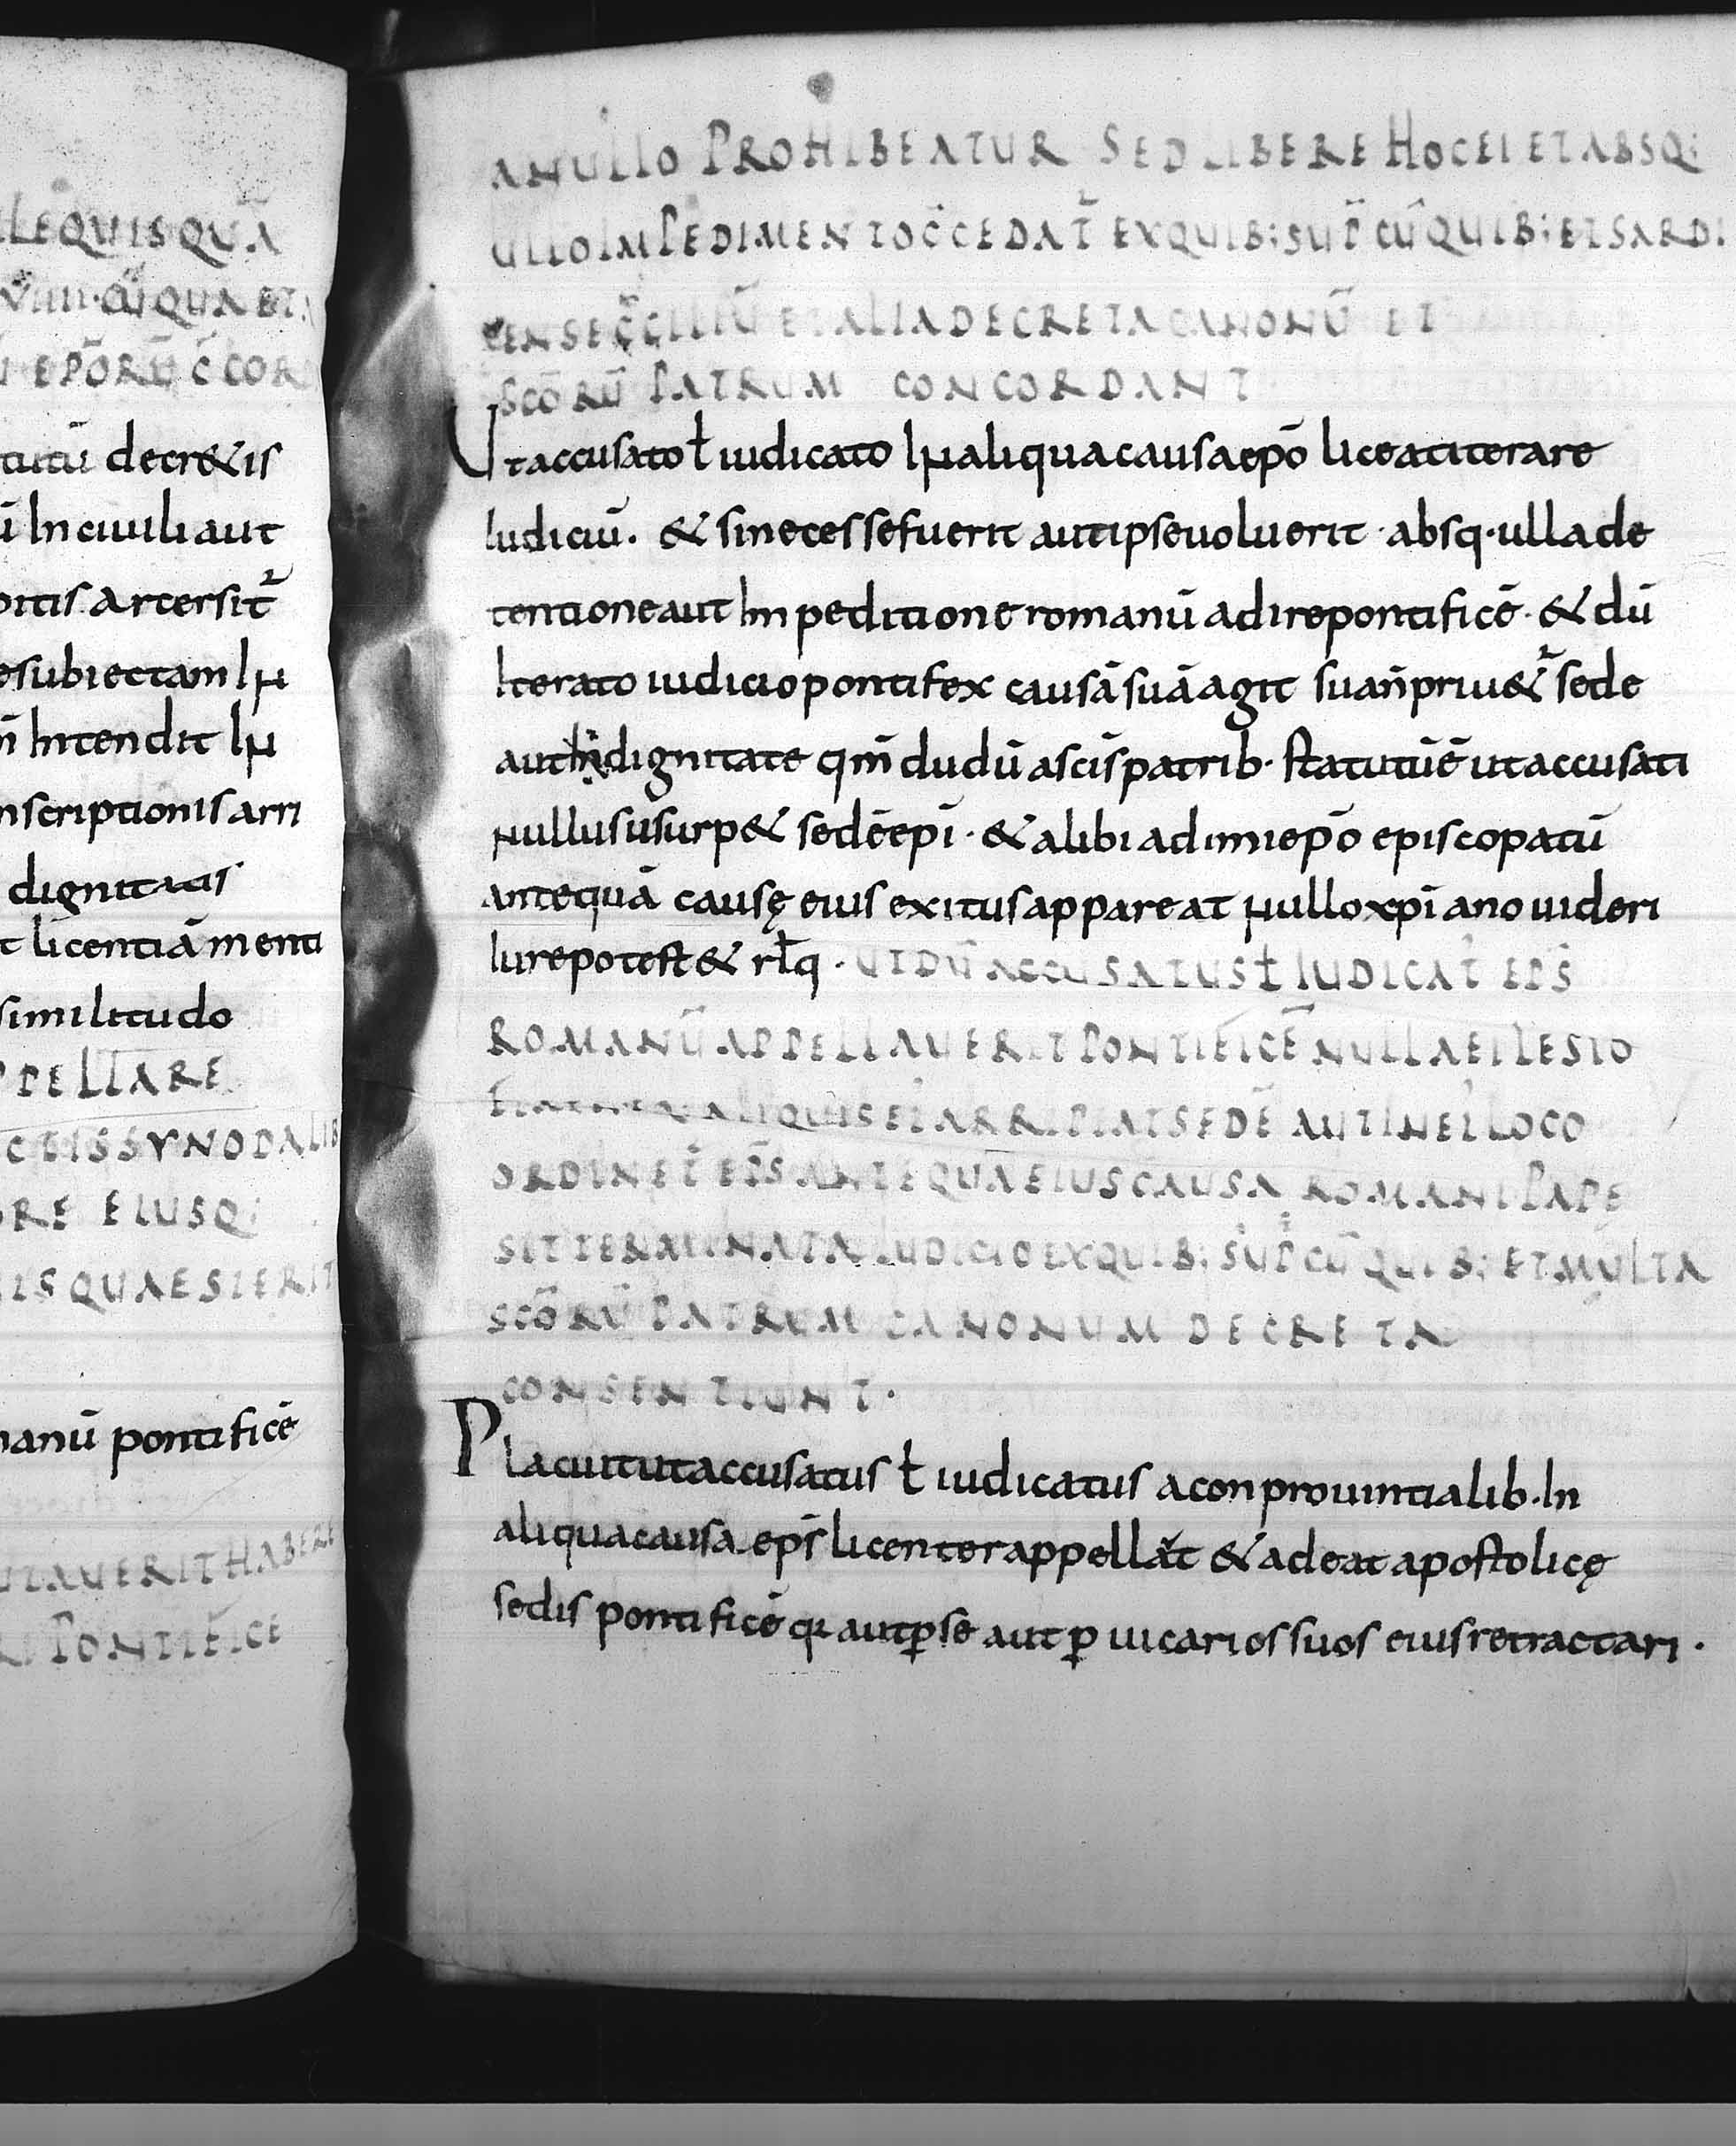 LEQUISQUĀ
VIIII · QUA ET
EPŌRŪ C̄COR
tutū decr&is
ū In ciuili aut
ortis arcersit̄
esubiectam lµ
n̄ Intendit lµ
nscriptionis arri
dignitatis
t licentiā menti
similitudo
PPELLARE
CTIS SYNODALIB
RE EIUSQ;
IS QUAESIERIT
manū pontificē
UTAUERIT HABERE
PONTIFICE
ANULLO PROHIBEATUR SED LIBERE HOC EI ET ABSQ;
ULLO IMPEDIMENTO C̄CEDAT̄ EX QUIB; SUP̄ CŪ QUIB; ET SARDI
CENSE C̄CILIŪ ET ALIA DECRETA CANONŪ ET
SCŌRŪ PATRUM CONCORDANT
Ut accusato ł iudicato lµ aliqua causa epō liceat iterare
Iudiciū. & si necesse fuerit aut ipse uoluerit · absq· ulla de
tentione aut Inpeditione romanū adire pontificē · & dū
Iterato iudicio pontifex causā suā agit sua n̄ priu&̄ sede
aut dignitate qm̄ dudū a scīs patrib· statutū ē ut accusati
nullus usurp& sedē epī · & alibi adimi epō episcopatū
antequā causę eius exitus appareat nullo xp̄iano uideri
Iure potest & rłq · UT DŪ ACCUSATUS ł IUDICAT̄ EPS̄
ROMANŪ APPELLAUERIT PONTIFICĒ NULLA EI LESIO
FIAT ALIQUIS EI ARRIPIAT SEDĒ AUT IN EI LOCO
ORDINET̄ EPS̄ ANTEQUA EIUS CAUSA ROMANI PAPĘ
SIT TERMINATA IUDICIO EX QUIB; SUP̄ CŪ QUIB; ET MULTA
SCŌRŪ PATRUM CANONUM DECRETA
CONSENTIUNT.
Placuit ut accusatus ł iudicatus a conprouintialib· In
aliqua causa eps̄ licenter appellāt & adeat apostolicę
sedis pontificē q̄ aut ꝑ se aut ꝑ uicarios suos eius retractari ·